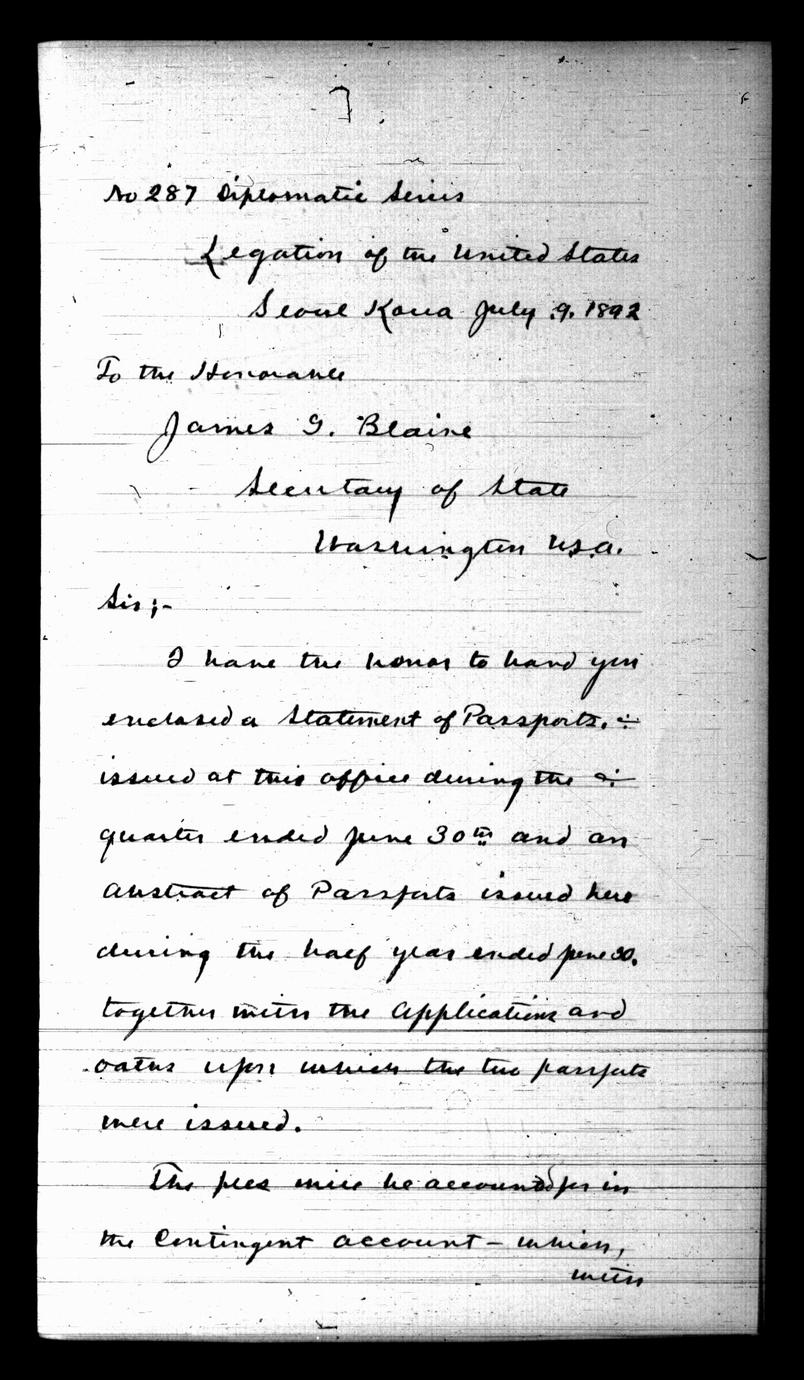 No 287 Diplomatic Series
Legation of the United States
Seoul Korea July 9. 1892
To the Honorable
James G. Blaine
Secretary of State
Washington U.S.A.
Sir;-
I have the honor to hand you
enclosed a Statement of Passports.
issued at this office during the
quarter ended June 30th and an
abstract of Passports issued here
during the half year ended June 30.
together with the applications and
oaths upon which the two passports
were issued.
The fees will be accounted for in
the Contingent account - which,
with